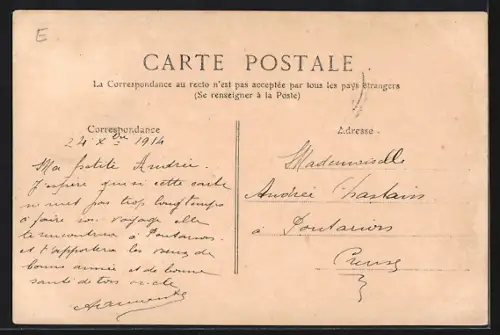 E
CARTE POSTALE
La Correspondance au recto n'est pas acceptée par tous les pays étrangers
(Se renseigner à la Poste)
Correspondance
24 Xbre 1914
Ma petite Andrée.
J'espère que si cette carte
ne met pas trop longtemps
à faire son voyage elle
te rencontrera à Pontarion
et t'apportera les vœux de
bonne année et de bonne
santé de ton oncle
Adresse
Mademoiselle
Andrée Chastain
à Pontarion
Creuse